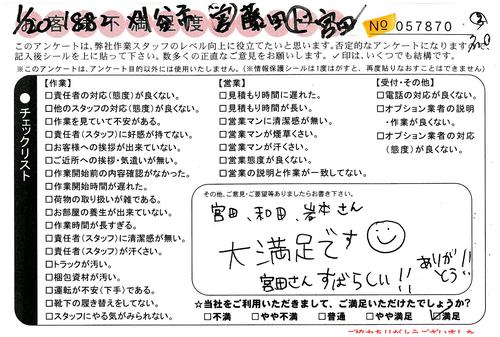 1/20 188 刈谷市 宮 藤田(上)宮田
お客 不満足度
No 057870
このアンケートは、弊社作業スタッフのレベル向上に役立てたいと思います。否定的なアンケートになりますので、
記入後シールを上に貼って下さい。数多くの正直なご意見をお願いします。✓印は、いくつでも結構です。
※このアンケートは、アンケート目的以外には使用いたしません。(※情報保護シールは1度はがすと、再度貼りなおすことはできません)
●チェックリスト
【作業】
□責任者の対応(態度)が良くない。
□他のスタッフの対応(態度)が良くない。
□作業を見ていて不安がある。
□責任者(スタッフ)に好感が持てない。
□お客様への挨拶が出来ていない。
□ご近所への挨拶・気遣いが無い。
□作業開始前の内容確認がなかった。
□作業開始時間が遅れた。
□荷物の取り扱いが雑である。
□お部屋の養生が出来ていない。
□作業時間が長すぎる。
□責任者(スタッフ)に清潔感が無い。
□責任者(スタッフ)が汗くさい。
□トラックが汚い。
□梱包資材が汚い。
□運転が不安(下手)である。
□靴下の履き替えをしてない。
□スタッフにやる気がみられない。
【営業】
□見積もり時間に遅れた。
□見積もり時間が長い。
□営業マンに清潔感が無い。
□営業マンが煙草くさい。
□営業マンが汗くさい。
□営業態度が良くない。
□営業の説明と作業が一致してない。
【受付・その他】
□電話の対応が良くない。
□オプション業者の説明
・作業が良くない。
□オプション業者の対応
(態度)が良くない。
その他、ご意見・ご要望等ありましたらお書き下さい。
宮田、和田、岩本さん
大満足です
宮田さんすばらしい!!
ありが
とう!!
☆当社をご利用いただきまして、ご満足いただけたでしょうか?
□不満 □やや不満 □普通 □やや満足 ☑満足
ご協力ありがとうございました